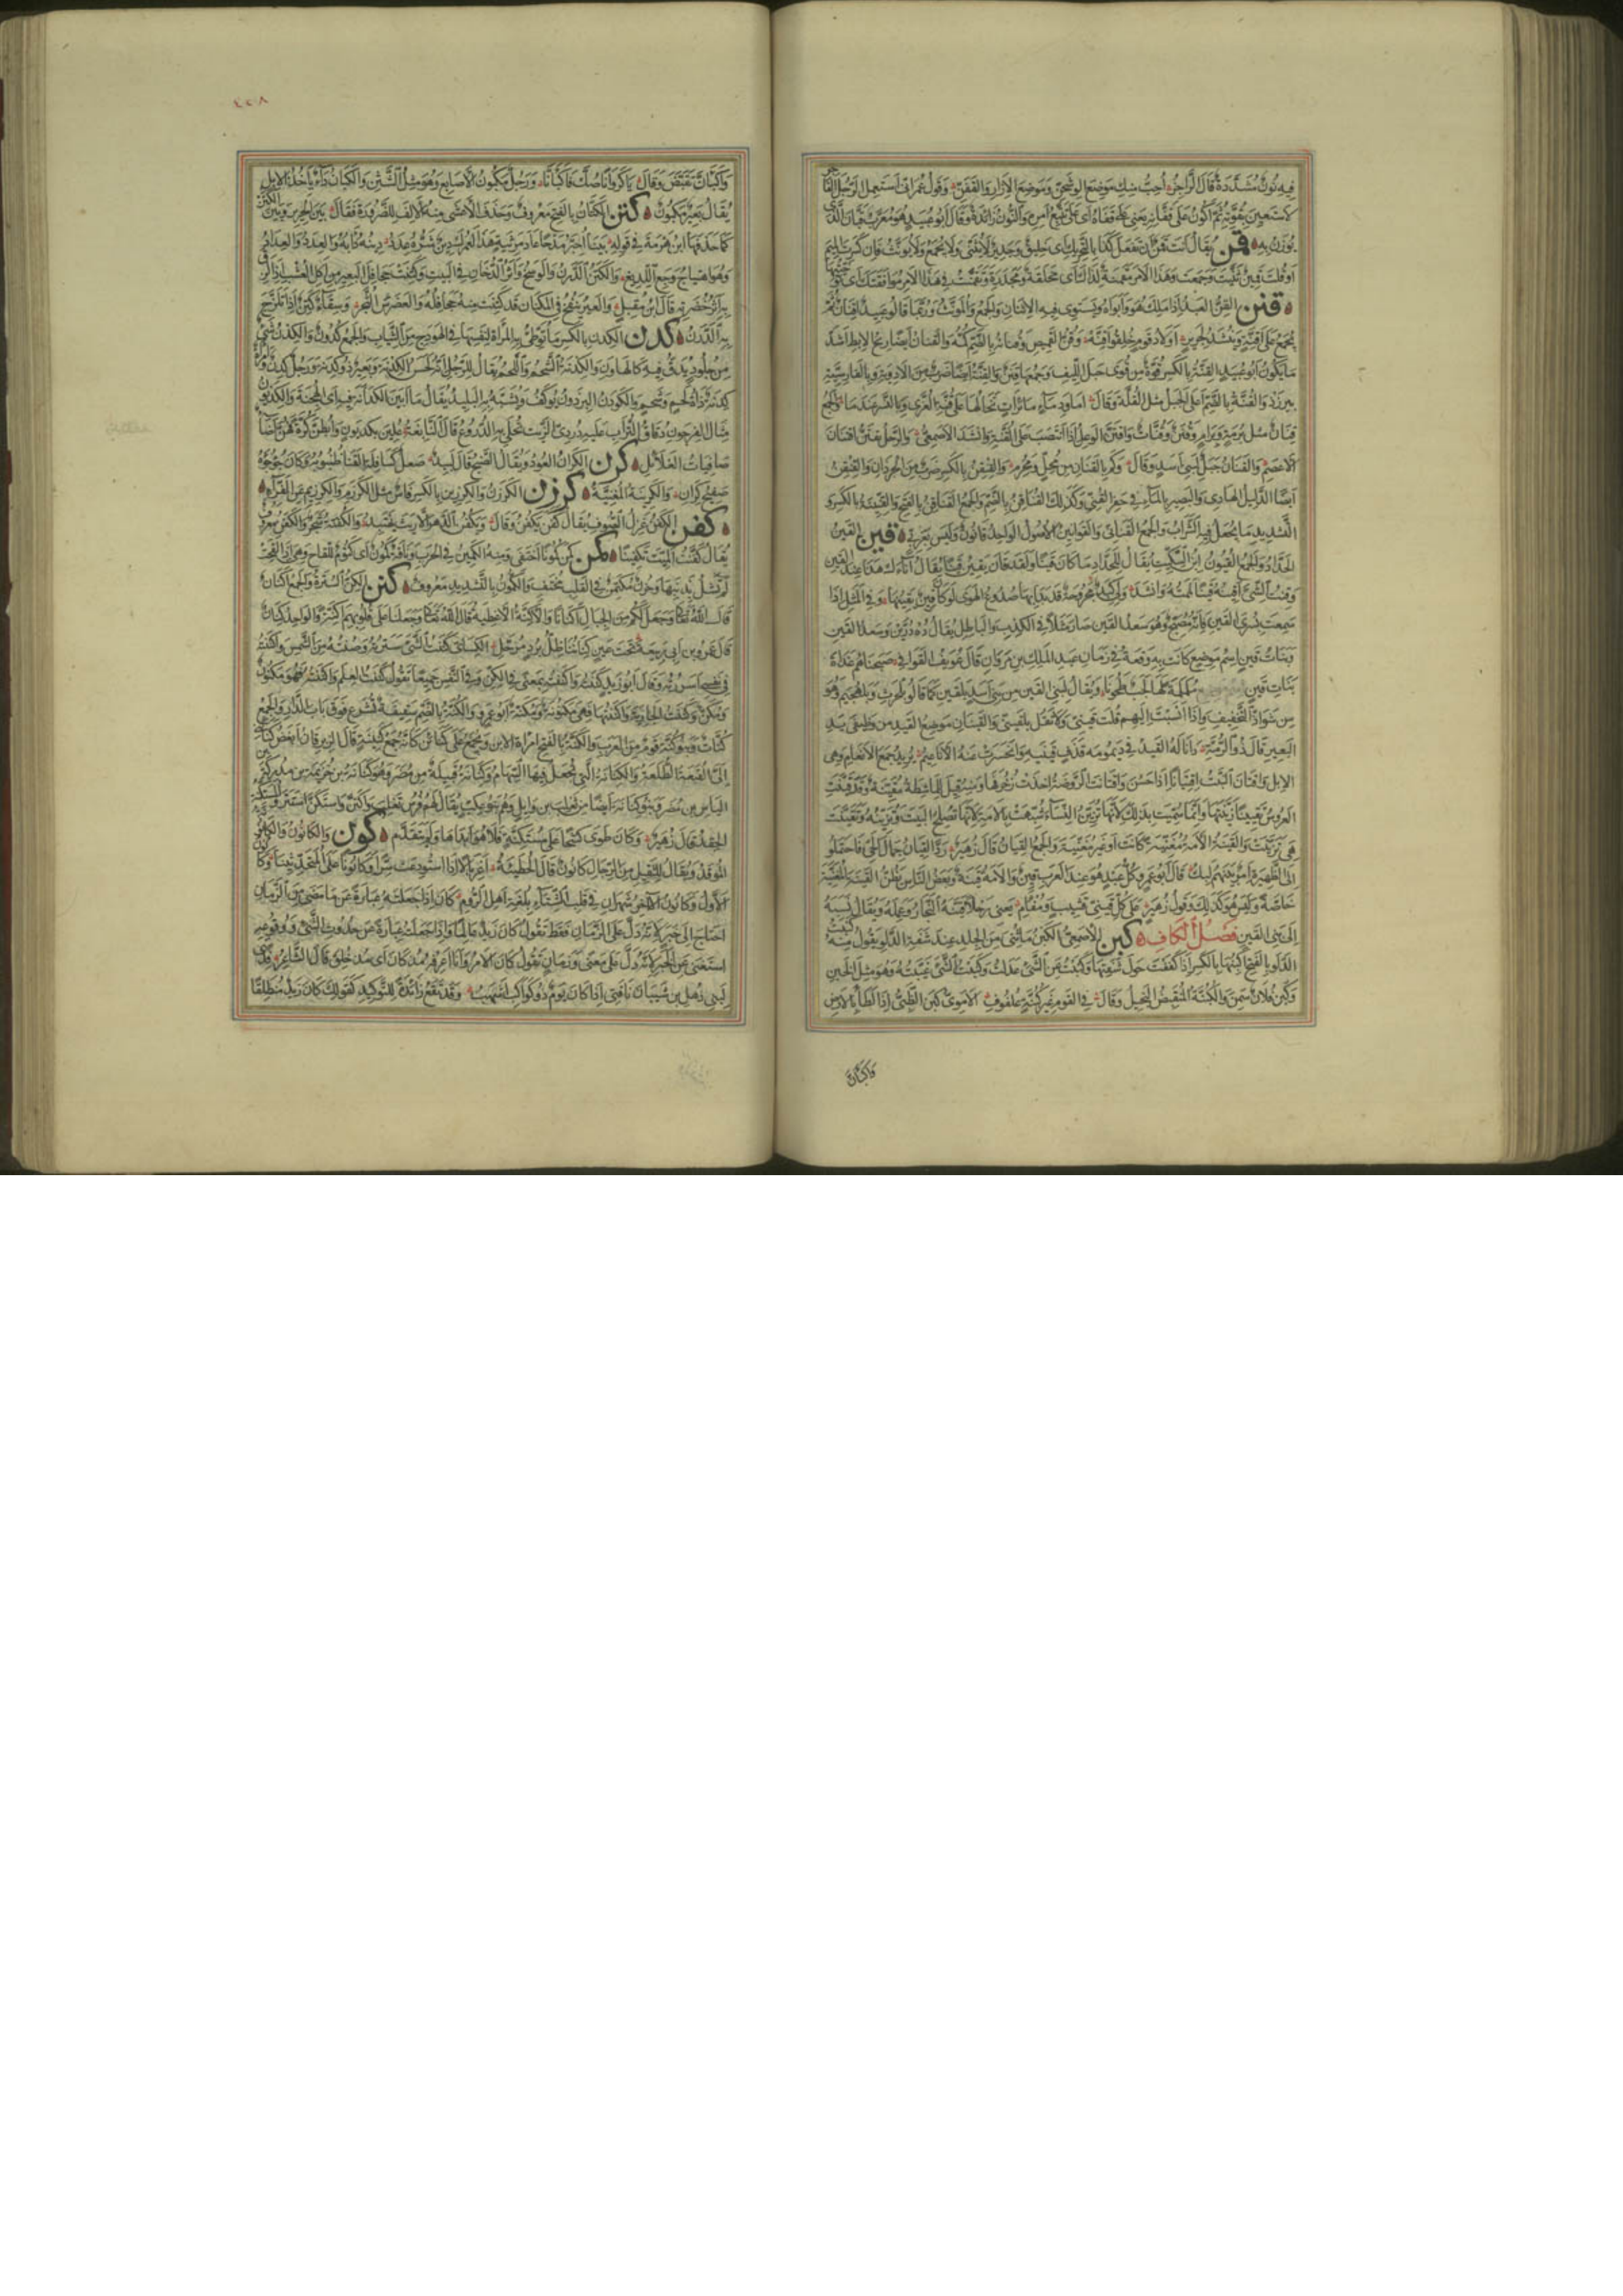 فيه نون مشددة قال الراجز احب منك موضع الوشحن وموضع الازار والقفن وقول عمر اني استعمل الرجل
لاستعين بقوته ثم اكون على قفانه يعني على قفاه اي على تتبع امره والنون زائدة وقال ابو عبيد هو معرب قبان الذي
يوزن به قمن يقال انت قمن ان تفعل كذا بالتحريك اي خليق وجدير لا يثنى ولا يجمع ولا يؤنث فان كسرت الميم
او قلت قمين ثنيت وجمعت وهذا الامر مقمنة لذلك اي مخلقة ومجدرة وتقمنت في هذا الامر موافقتك اي توخيتها
قنن القن العبد اذا ملك هو وابواه ويستوي فيه الاثنان والجمع والمؤنث وربما قالوا عبيد اقنان ثم
يجمع على اقنة وينشد لجرير اولاد قوم خلقوا اقنه وقن القميص وقنانه بالضم كمه والقنان ايضا ريح الابط اشد
ما يكون ابو عبيد القنة بالكسر قوة من قوى حبل الليف وجمعها قنن والقنة ايضا ضرب من الادوية وبالفارسية
بيرزد والقنة بالضم اعلى الجبل مثل القلة وقال اما ودماء مائرات تخالها على قنة العزى وبالنسر عندما والجمع
قنان مثل برمة وبرام وقنن وقنات واقتن الوعل اذا انتصب على القنة وانشد الاصمعي والرحل يقتن اقتنان
الاعصم والقنان جبل لبني اسد وقال وكم بالقنان من محل ومحرم والقنقن بالكسر ضرب من الجرذان والقنقن
ايضا الدليل الهادي والبصير بالماء في حفر القني وكذلك القناقن بالضم والجمع القناقن بالفتح والقنينة بالكسر و
التشديد ما يجعل فيه الشراب والجمع القناني والقوانين الاصول الواحد قانون وليس بعربي قين القين
الحداد والجمع القيون ابن السكيت يقال للحداد ما كان قينا ولقد قان يقين قينا يقال
وقنت الشيء اقينه قينا لممته وانشد ولي كبد مجروحة قد بدا بها صدوع الهوى لو كان قين يقينها وفي المثل اذا
سمعت بسرى القين فانه مصبح وهو سعد القين صار مثلا في الكذب والباطل يقال ده درين وسعد القين
وبنات قين اسم موضع كانت به وقعة في زمان عبد الملك بن مروان قال عويف القوافي صبحناهم غداة
بنات قين ململمة لها لجب طحونا ويقال لبني القين من بني اسد بلقين كما قالوا بلحرث وبلهجيم وهو
من شواذ التخفيف واذا انسبت اليهم قلت قيني ولا تقل بلقيني والقينان موضع القيد من وظيفي يد
البعير قال ذو الرمة دانى له القيد في ديمومة قذف قينيه وانحسرت عنه الاناعيم يريد جمع الانعام وهي
الابل واقتان النبت اقتيانا اذا حسن واقتانت الروضة اخذت زخرفها ومنه قيل للماشطة مقينة وقد قينت
العروس تقيينا زينتها وانما سميت بذلك لانها تزين النساء شبهت بالامة لانها تصلح البيت وتزينه وتقينت
هي تزينت والقينة الامة مغنية كانت او غير مغنية والجمع القيان قال زهير رد القيان جمال الحي فاحتملوا
الى الظهيرة امر بينهم لبك قال ابو عمرو كل عبد هو عند العرب قين والامة قينة وبعض الناس يظن القينة المغنية
خاصة وليس هو كذلك وقول زهير على كل قيني قشيب ومفأم يعني رحلا قينه النجار وعمله ويقال نسبه
الى بني القين فصل الكاف كبن الاصمعي الكبن ما ثني من الجلد عند شفة الدلو يقول منه كبنت
الدلو بالفتح اكبنها بالكسر اذا كففت حول شفتها وكبنت عن الشيء عدلت وكبنت الشيء غيبته وهو مثل الخبن
وكبن فلان سمن والكبنة المنقبض البخيل وقال في القوم غير كبنة علفوف الاموي كبن الظبي اذا لطأ بالارض
واكبان
٤٤٨
واكبأن تقبض وقال يا كروانا صك فاكبأنا ورجل مكبون الاصابع وهو مثل الشثن والكبان داء ياخذ الابل
يقال بعير مكبون كتن الكتان بالفتح معروف وحذف الاعشى منه الالف للضرورة فقال بين الحرير وبين الكتن
كما حذفها ابن هرمة في قوله
وهو اهتياج وجع اللديغ والكتن الدرن والوسخ واثر الدخان في البيت وكتنت جحافل البعير من اكل العشب اذا لزق
به اثر خضرته قال ابن مقبل والعير ينفخ في المكنان قد كتنت منه جحافله والعضرس الثجر وسقاء كتن اذا تلزج
به الدرن كدن الكدن بالكسر ما توطئ به المراة لنفسها في الهودج من الثياب والجمع كدون والكدن شيء
من جلود يدق فيه كالهاون والكدنة الشحم واللحم يقال للرجل انه لحسن الكدنة وبعير ذو كدنة ورجل كدن وامراة
كدنة ذات لحم وشحم والكودن البرذون يوكف ويشبه به البليد يقال ما ابين الكدانة فيه اي الهجنة والكديون
مثال الفرجون دقاق التراب عليه دردي الزيت تجلى به الدروع قال النابغة علين بكديون وابطن كرة فهن اضاء
صافيات الغلائل كرن الكران العود ويقال الصنج قال لبيد صعل كسافلة القناة ظنبوبه وكان جؤجؤه
صفيح كران والكرينة المغنية كرزن الكرزن والكرزين بالكسر فاس مثل الكرزم والكرزيم عن الفراء
كفن الكفن غزل الصوف يقال كفن يكفن وقال ويكفن الدهر الا ريث يهتبد والكفنة شجر والكفن معروف
يقال كفنت الميت تكفينا كمن كمن كمونا اختفى ومنه الكمين في الحرب وناقة كمون اي كتوم للقاح وهي اذا لقحت
لم تشل بذنبها وحزن مكتمن في القلب مختف والكمون بالتشديد معروف كنن الكن السترة والجمع اكنان
قال الله تعالى وجعل لكم من الجبال اكنانا والاكنة الاغطية قال الله تعالى وجعلنا على قلوبهم اكنة والواحد كنان
قال عمر بن ابي ربيعة تحت عين كناننا ظل برد مرحل الكسائي كننت الشيء سترته وصنته من الشمس واكننته
في نفسي اسررته وقال ابو زيد كننته واكننته بمعنى في الكن وفي النفس جميعا تقول كننت العلم واكننته فهو مكنون
ومكن وكننت الجارية واكننتها فهي مكنونة ومكنة ابو عمرو والكنة بالضم سقيفة تشرع فوق باب الدار والجمع
كنات وبنو كنة قوم من العرب والكنة بالفتح امراة الابن ويجمع على كنائن كانه جمع كنينة قال الزبرقان ابغض كنائني
الي القبعة الطلعة والكنانة التي تجعل فيها السهام وكنانة قبيلة من مضر وهو كنانة بن خزيمة بن مدركة بن
الياس بن مضر وبنو كنانة ايضا من تغلب بن وايل وهم بنو عكب يقال لهم قريش تغلب واكتن واستكن استتر
الحقد قال زهير وكان طوى كشحا على مستكنة فلا هو ابداها ولم يتقدم كون والكانون والكانونة
الموقد ويقال للثقيل من الرجال كانون قال الحطيئة اغربالا اذا استودعت سرا وكانونا على المتحدثينا وكانون
الاول وكانون الآخر شهران في قلب الشتاء بلغة اهل الروم كان اذا جعلته عبارة عما مضى من الزمان
احتاج الى خبر لانه دل على الزمان فقط تقول كان زيد عالما واذا جعلته عبارة عن حدوث الشيء ووقوعه
استغنى عن الخبر لانه دل على معنى وزمان تقول كان الامر وانا اعرفه مذ كان اي مذ خلق قال الشاعر فدى
لبني ذهل بن شيبان ناقتي اذا كان يوم ذو كواكب اشهب وقد تقع زائدة للتوكيد كقولك كان زيد منطلقا